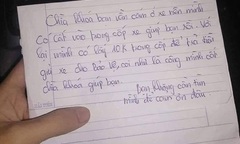 Chìa khoá bạn vẫn cắm ở xe nên mình
có cất vào trong cốp xe giúp bạn rồi. Với
lại mình có lấy 10k trong cốp để trả tiền
gửi xe cho bảo vệ, coi như là công mình cất
chìa khoá giúp bạn.
Bạn không cần tìm
mình để cảm ơn đâu